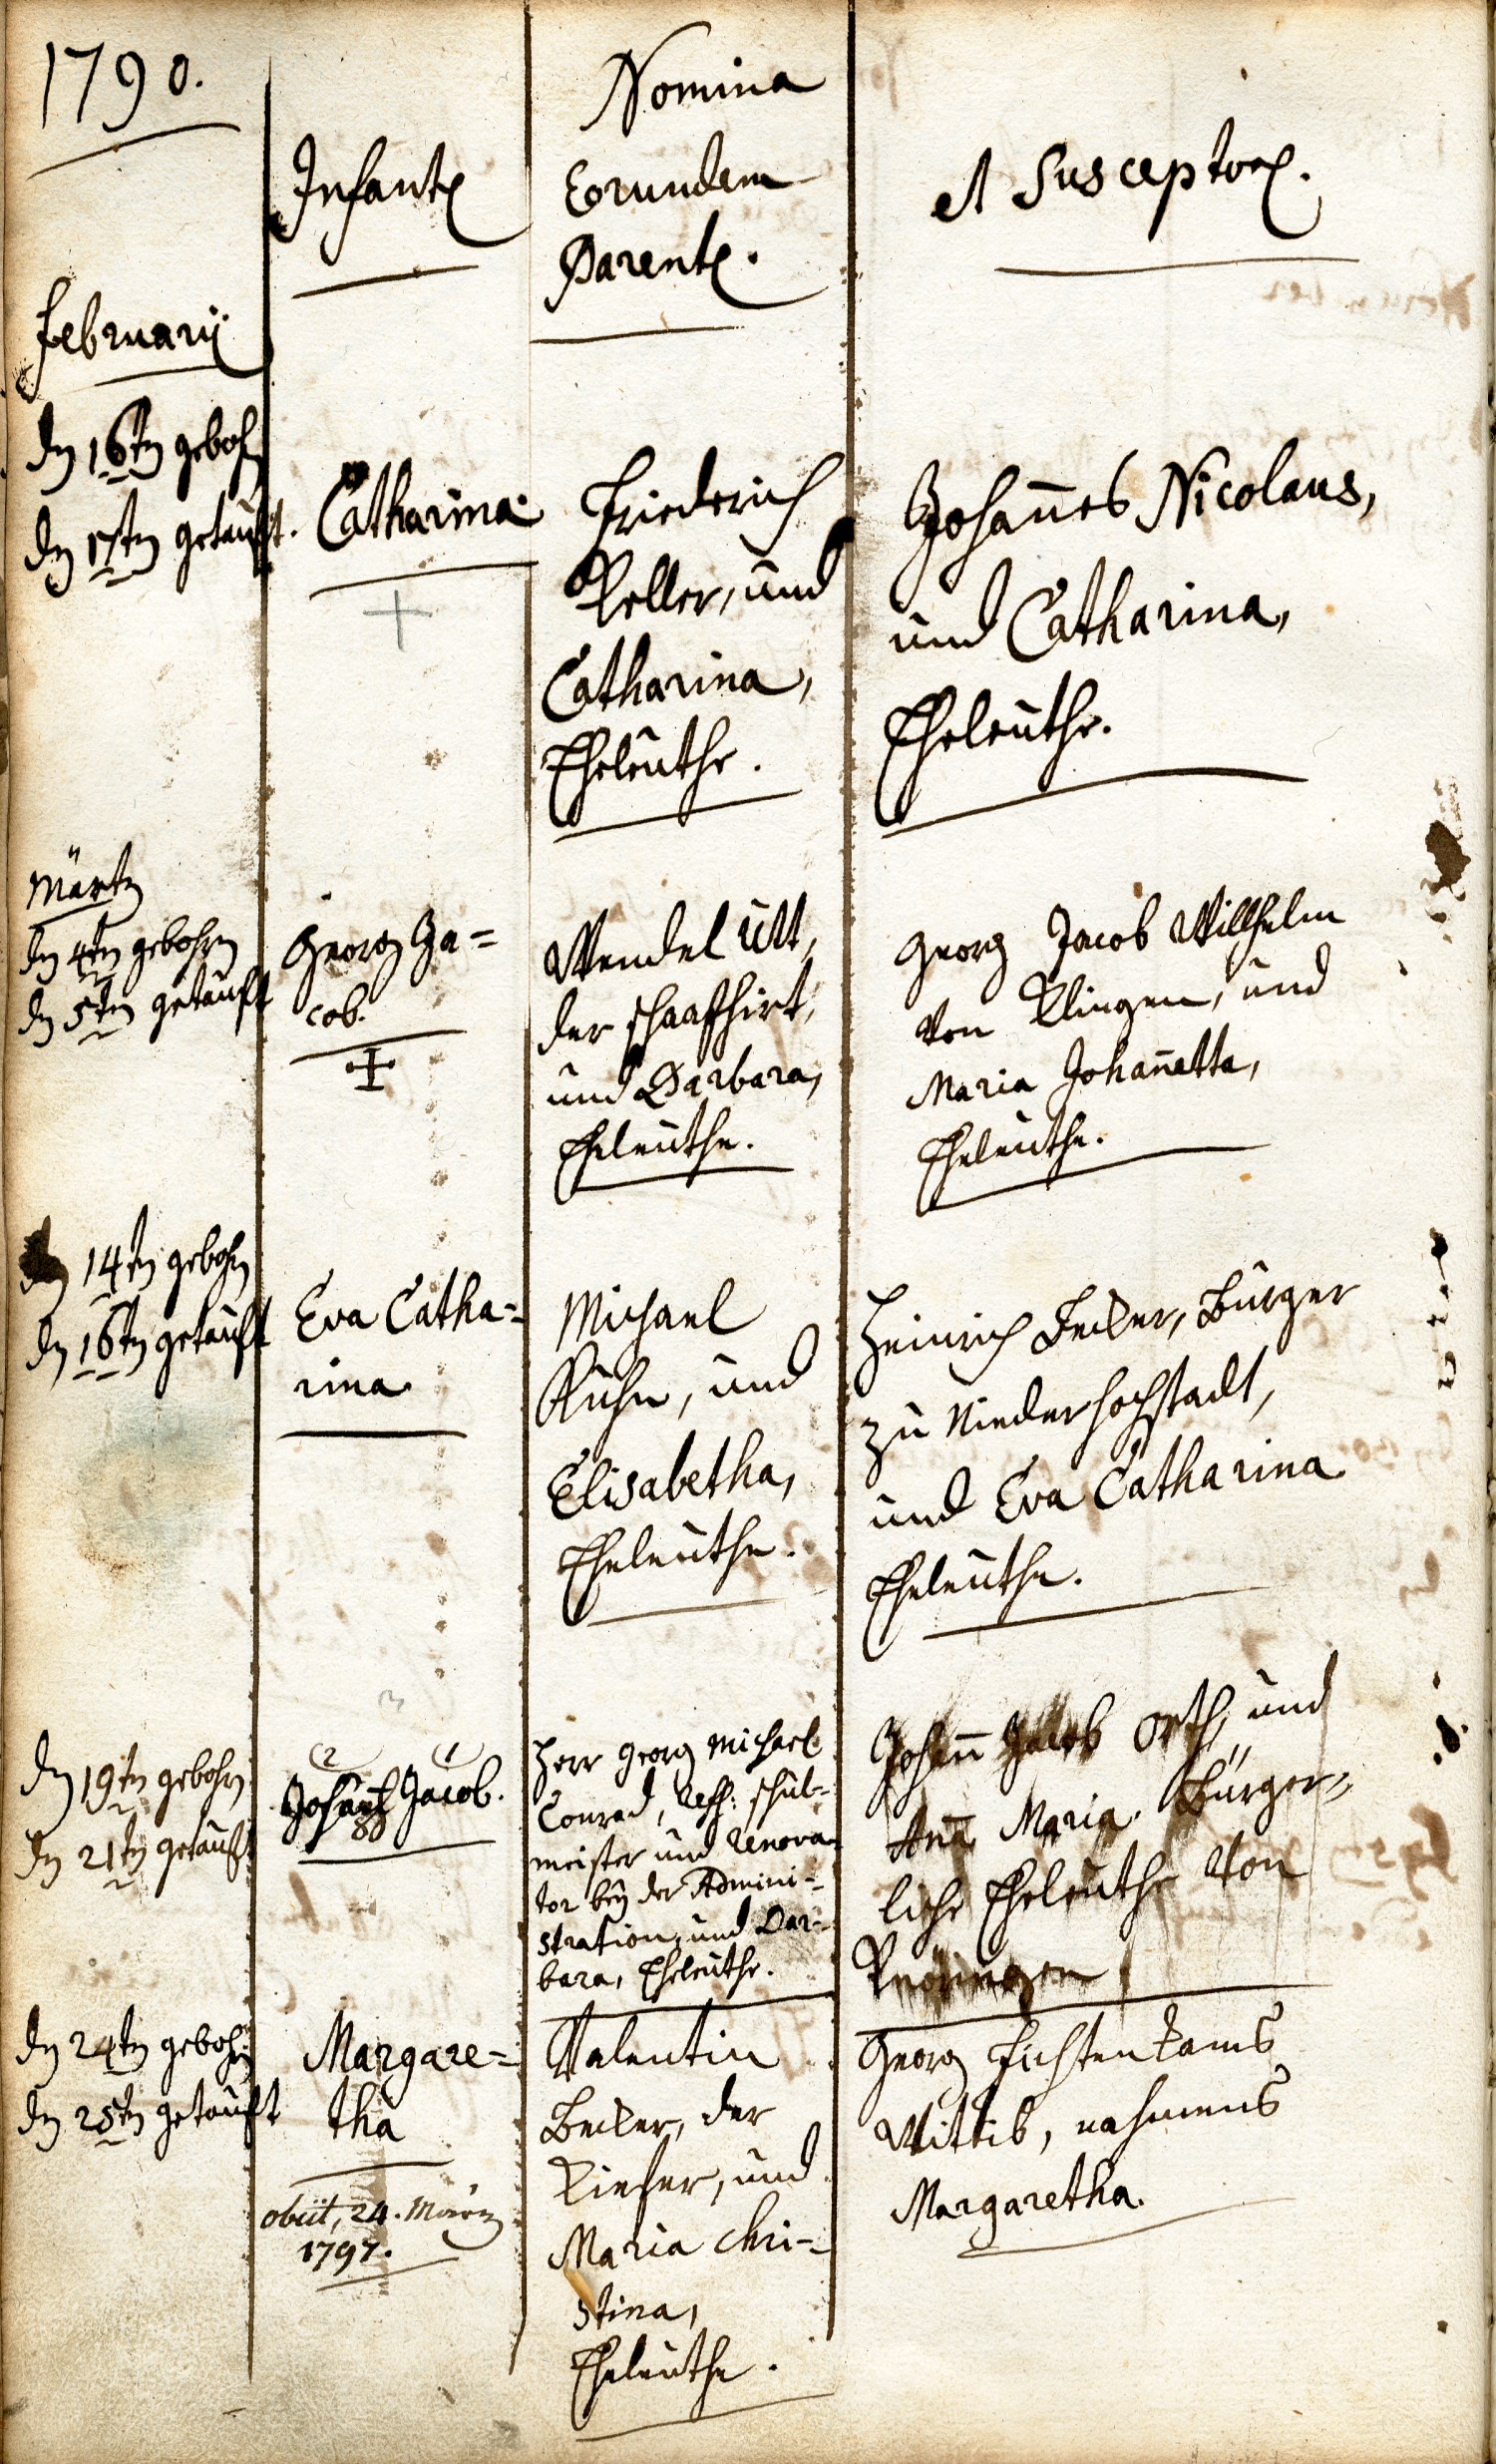 1790.
Nomina
Infant
Eorundem
Parent.
et Susceptor.
Februarii
dn 16tn gebohrn
dn 17tn getaufft.
Catharina
Friederich
Keller, und
Catharina,
Eheleuthe.
Johan̄es Nicolaus,
und Catharina,
Eheleuthe.
Märtz
dn 4tn gebohrn
dn 5tn getaufft
Georg Ja=
cob.
Wendel Utt,
der schaafhirt,
und Barbara,
Eheleuthe.
Georg Jacob Willhelm
von Klingen, und
Maria Johan̄etta,
Eheleuthe.
dn 14tn gebohrn
dn 16tn getaufft
Eva Catha=
rina
Michael
Kuhn, und
Elisabetha,
Eheleuthe.
Heinrich Becker, Bürger
zu Niederhochstadt,
und Eva Catharina
Eheleuthe.
dn 19tn gebohrn
dn 21tn getaufft
2 1
Johann Jacob.
Herr Georg Michael
Conrad, reff: schul-
meister und Renova-
tor bey der Admini-
stration, und Bar-
bara, Eheleuthe.
Johan̄ Jacob Orth, und
An̄a Maria Bürger=
liche Eheleuthe von
Knöringen
dn 24tn gebohrn
dn 25tn getaufft
Margare=
tha
obiit, 24. März
1797.
Valentin
Becker, der
Kiefer, und
Maria Chri-
stina,
Eheleuthe.
Georg Fichtenkams
Wittib, nahmens
Margaretha.